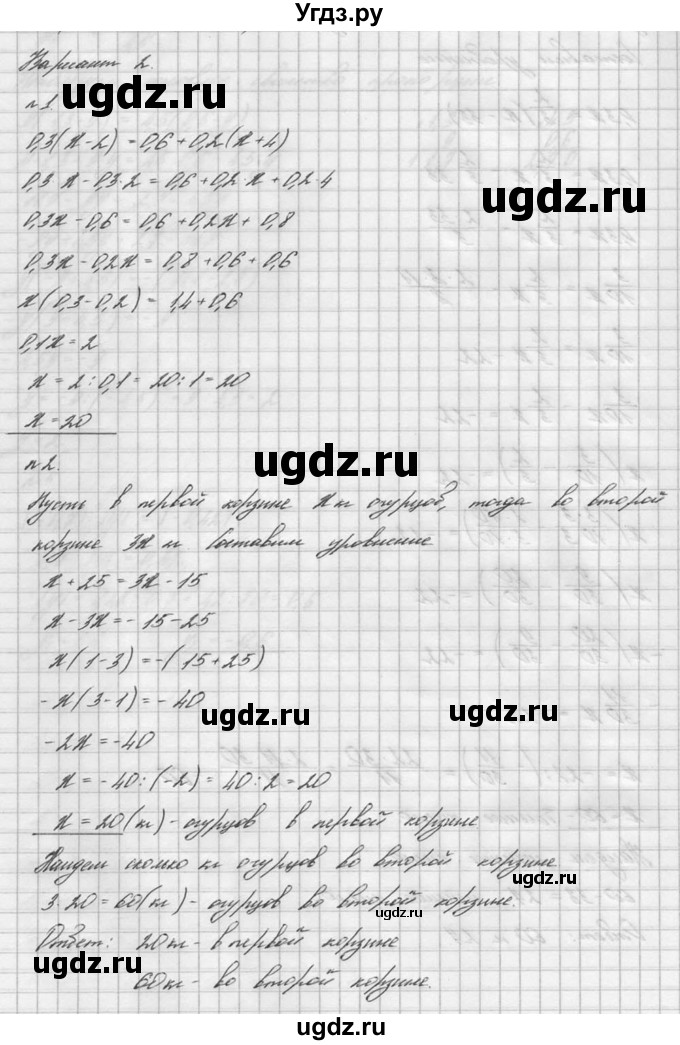 Угдз.ру
Вариант 2.
ugdz.ru
n 1
0,3(x-2) = 0,6 + 0,2(x+4)
0,3·x - 0,3·2 = 0,6 + 0,2·x + 0,2·4
ugdz.ru
0,3x - 0,6 = 0,6 + 0,2x + 0,8
0,3x - 0,2x = 0,8 + 0,6 + 0,6
x(0,3-0,2) = 1,4 + 0,6
0,1x = 2
x = 2 : 0,1 = 20 : 1 = 20
x = 20
ugdz.ru
n 2.
Пусть в первой корзине x кг огурцов, тогда во второй
корзине 3x кг. Составим уровнение
x + 25 = 3x - 15
x - 3x = - 15 - 25
x(1-3) = -(15+25)
-x(3-1) = - 40
ugdz.ru ugdz.ru
-2x = -40
x = -40 : (-2) = 40 : 2 = 20
x = 20 (кг) - огурцов в первой корзине
Найдем сколько кг огурцов во второй корзине
ugdz.ru
3·20 = 60 (кг) - огурцов во второй корзине.
ugdz.ru
Ответ: 20 кг - в первой корзине
ugdz.ru
60 кг - во второй корзине.
ugdz.ru